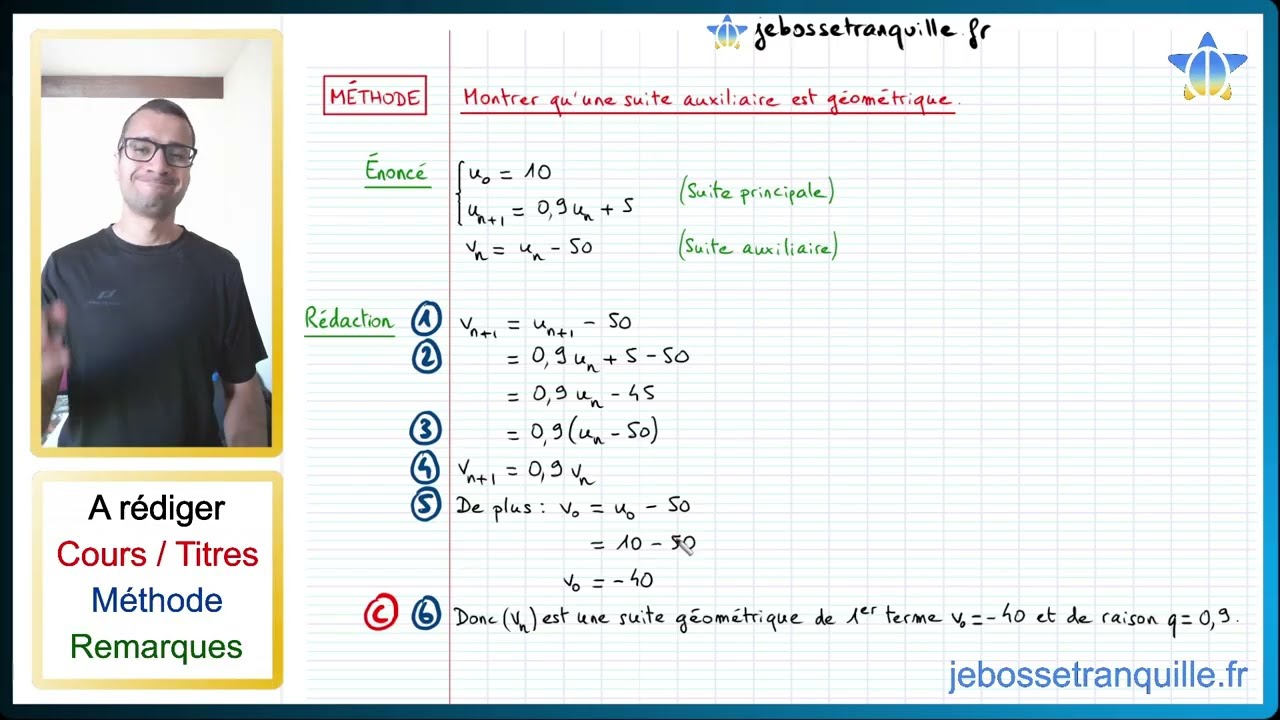 jebossetranquille.fr
MÉTHODE Montrer qu'une suite auxiliaire est géométrique.
Énoncé u₀ = 10
uₙ₊₁ = 0,9uₙ + 5 (Suite principale)
vₙ = uₙ - 50 (Suite auxiliaire)
Rédaction 1 vₙ₊₁ = uₙ₊₁ - 50
2 = 0,9uₙ + 5 - 50
= 0,9uₙ - 45
3 = 0,9(uₙ - 50)
4 vₙ₊₁ = 0,9 vₙ
5 De plus : v₀ = u₀ - 50
= 10 - 50
v₀ = -40
C 6 Donc (vₙ) est une suite géométrique de 1er terme v₀ = -40 et de raison q = 0,9.
A rédiger
Cours / Titres
Méthode
Remarques
jebossetranquille.fr